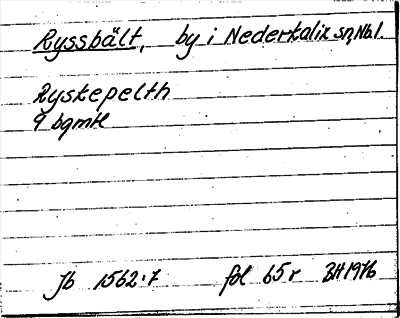 Ryssbält, by i Nederkalix sn, Nb.l.
Ryskepelth
9 bgmtl
Jb 1562:7 fol 65 r BH 1976